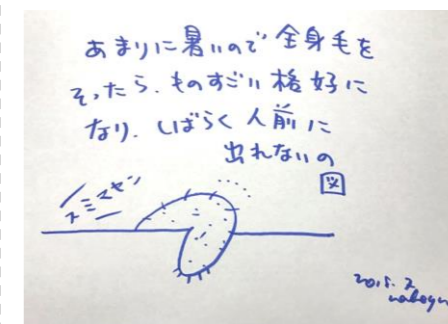 あまりに暑いので全身毛を
そったら、ものすごい格好に
なり、しばらく人前に
出れないの
図
スミマセン